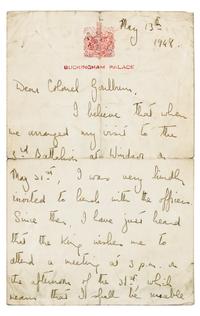 May 13th
1948.
BUCKINGHAM PALACE
Dear Colonel Goulburn,
I believe that when
we arranged my visit to the
3rd Battalion at Windsor on
May 31st I was very kindly
invited to lunch with the officers.
Since then, I have just heard
that the King wishes me to
attend a meeting at 3 p.m. on
the afternoon of the 31st which
means that I shall be unable